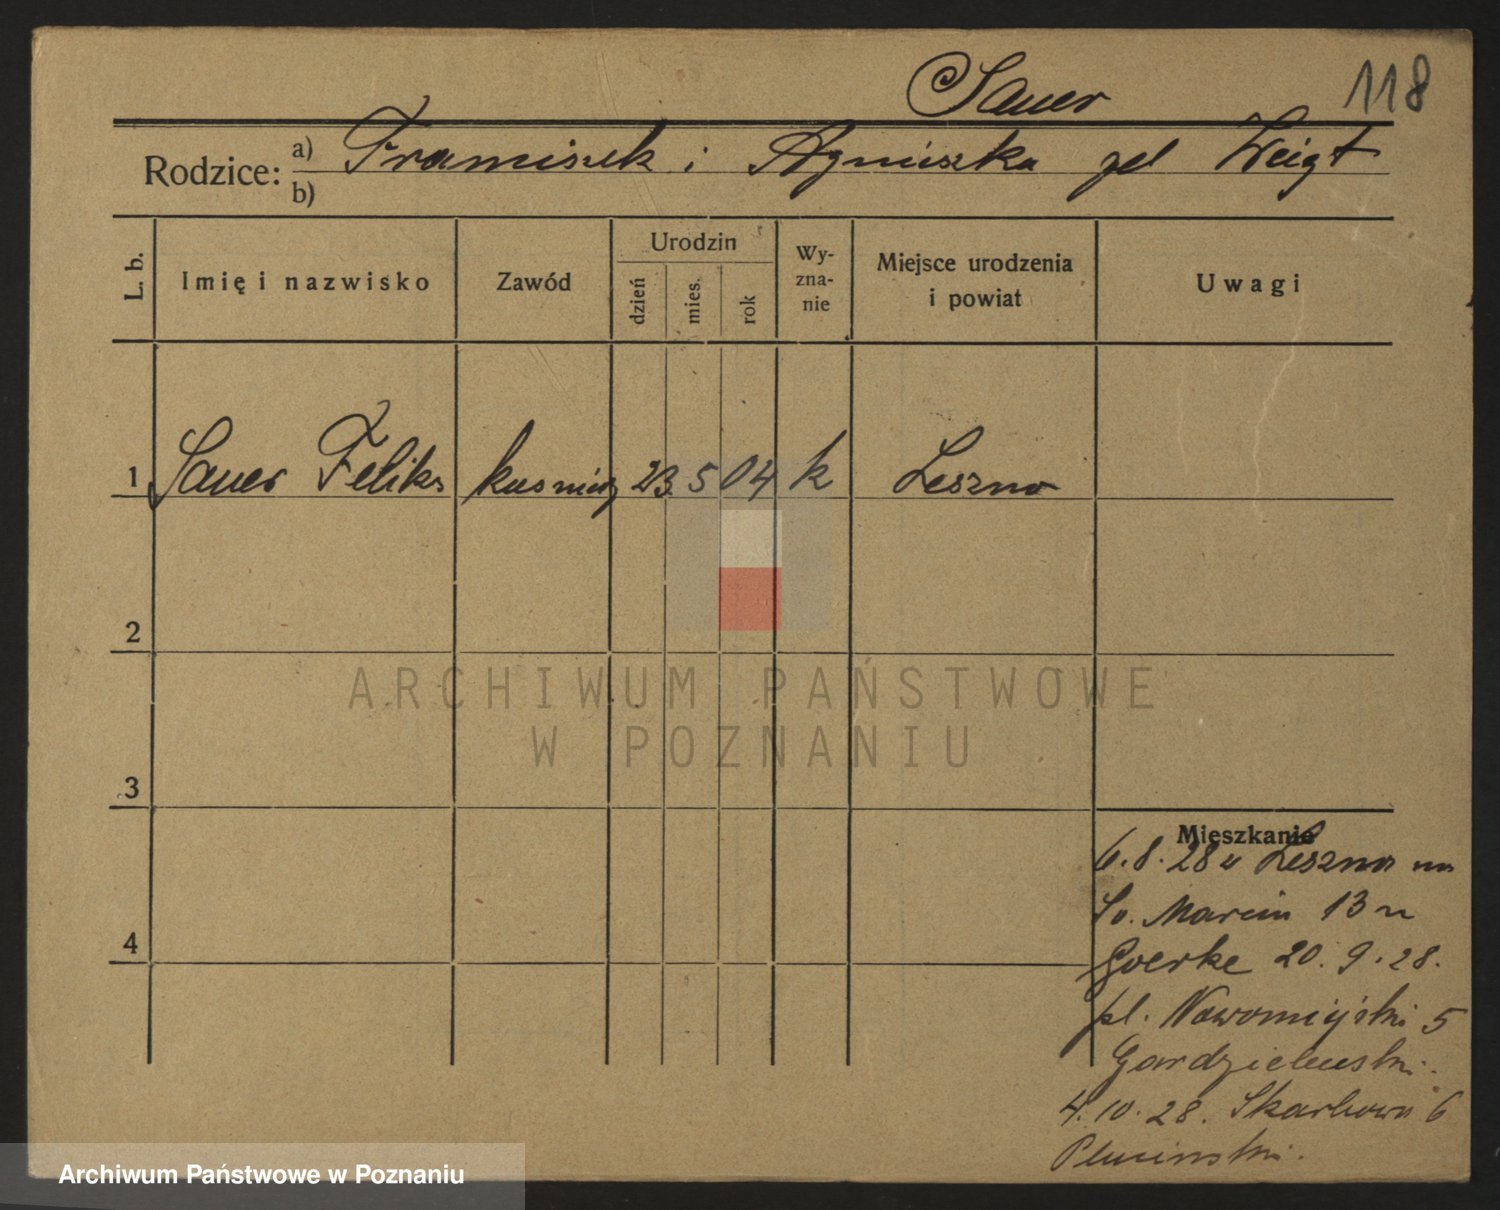 Sauer
118
Rodzice: a) Franciszek i Agnieszka zd Weigt
b)
L. b.
Imię i nazwisko
Zawód
Urodzin
dzień
mies.
rok
Wy-
zna-
nie
Miejsce urodzenia
i powiat
Uwagi
1 Sauer Feliks kuśnierz 23 5 04 k Leszno
2
ARCHIWUM PAŃSTWOWE
W POZNANIU
3
Mieszkanie
6.8.28 z Leszno na
Św. Marcin 13 u
Goerke 20.9.28.
pl. Nowomiejski 5
Gardzielewski.
4
4.10.28. Skarbowa 6
Pluciński.
Archiwum Państwowe w Poznaniu